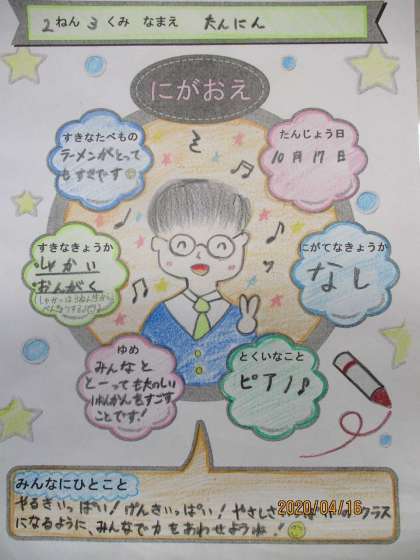 2 ねん 3 くみ なまえ たんにん
にがおえ
すきなたべもの
ラーメンがとって
もすきです
たんじょう日
10月17日
すきなきょうか
・しゃかい
・おんがく
にがてなきょうか
なし
ゆめ
みんなと
とーってもたのしい
じかんをすごす
ことです!
とくいなこと
ピアノ♪
みんなにひとこと
やるきいっぱい!げんきいっぱい!やさしさ クラス
になるように、みんなで力をあわせようね!
2020/04/16